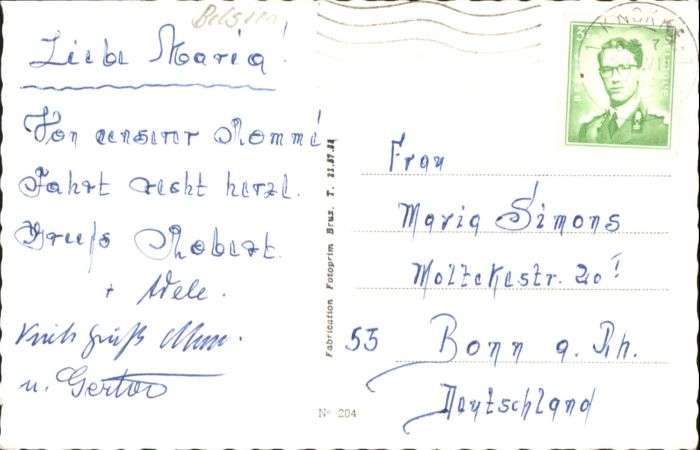 Liebe Maria!
Von unserer Romme
Fahrt recht herzl.
Gruß Robert.
+ Adele.
Gruß
u.
Fabrication Fotoprim Brux. T.
Nº 204
Frau
Maria Simons
Moltkestr. 20
53 Bonn a. Rh.
Deutschland